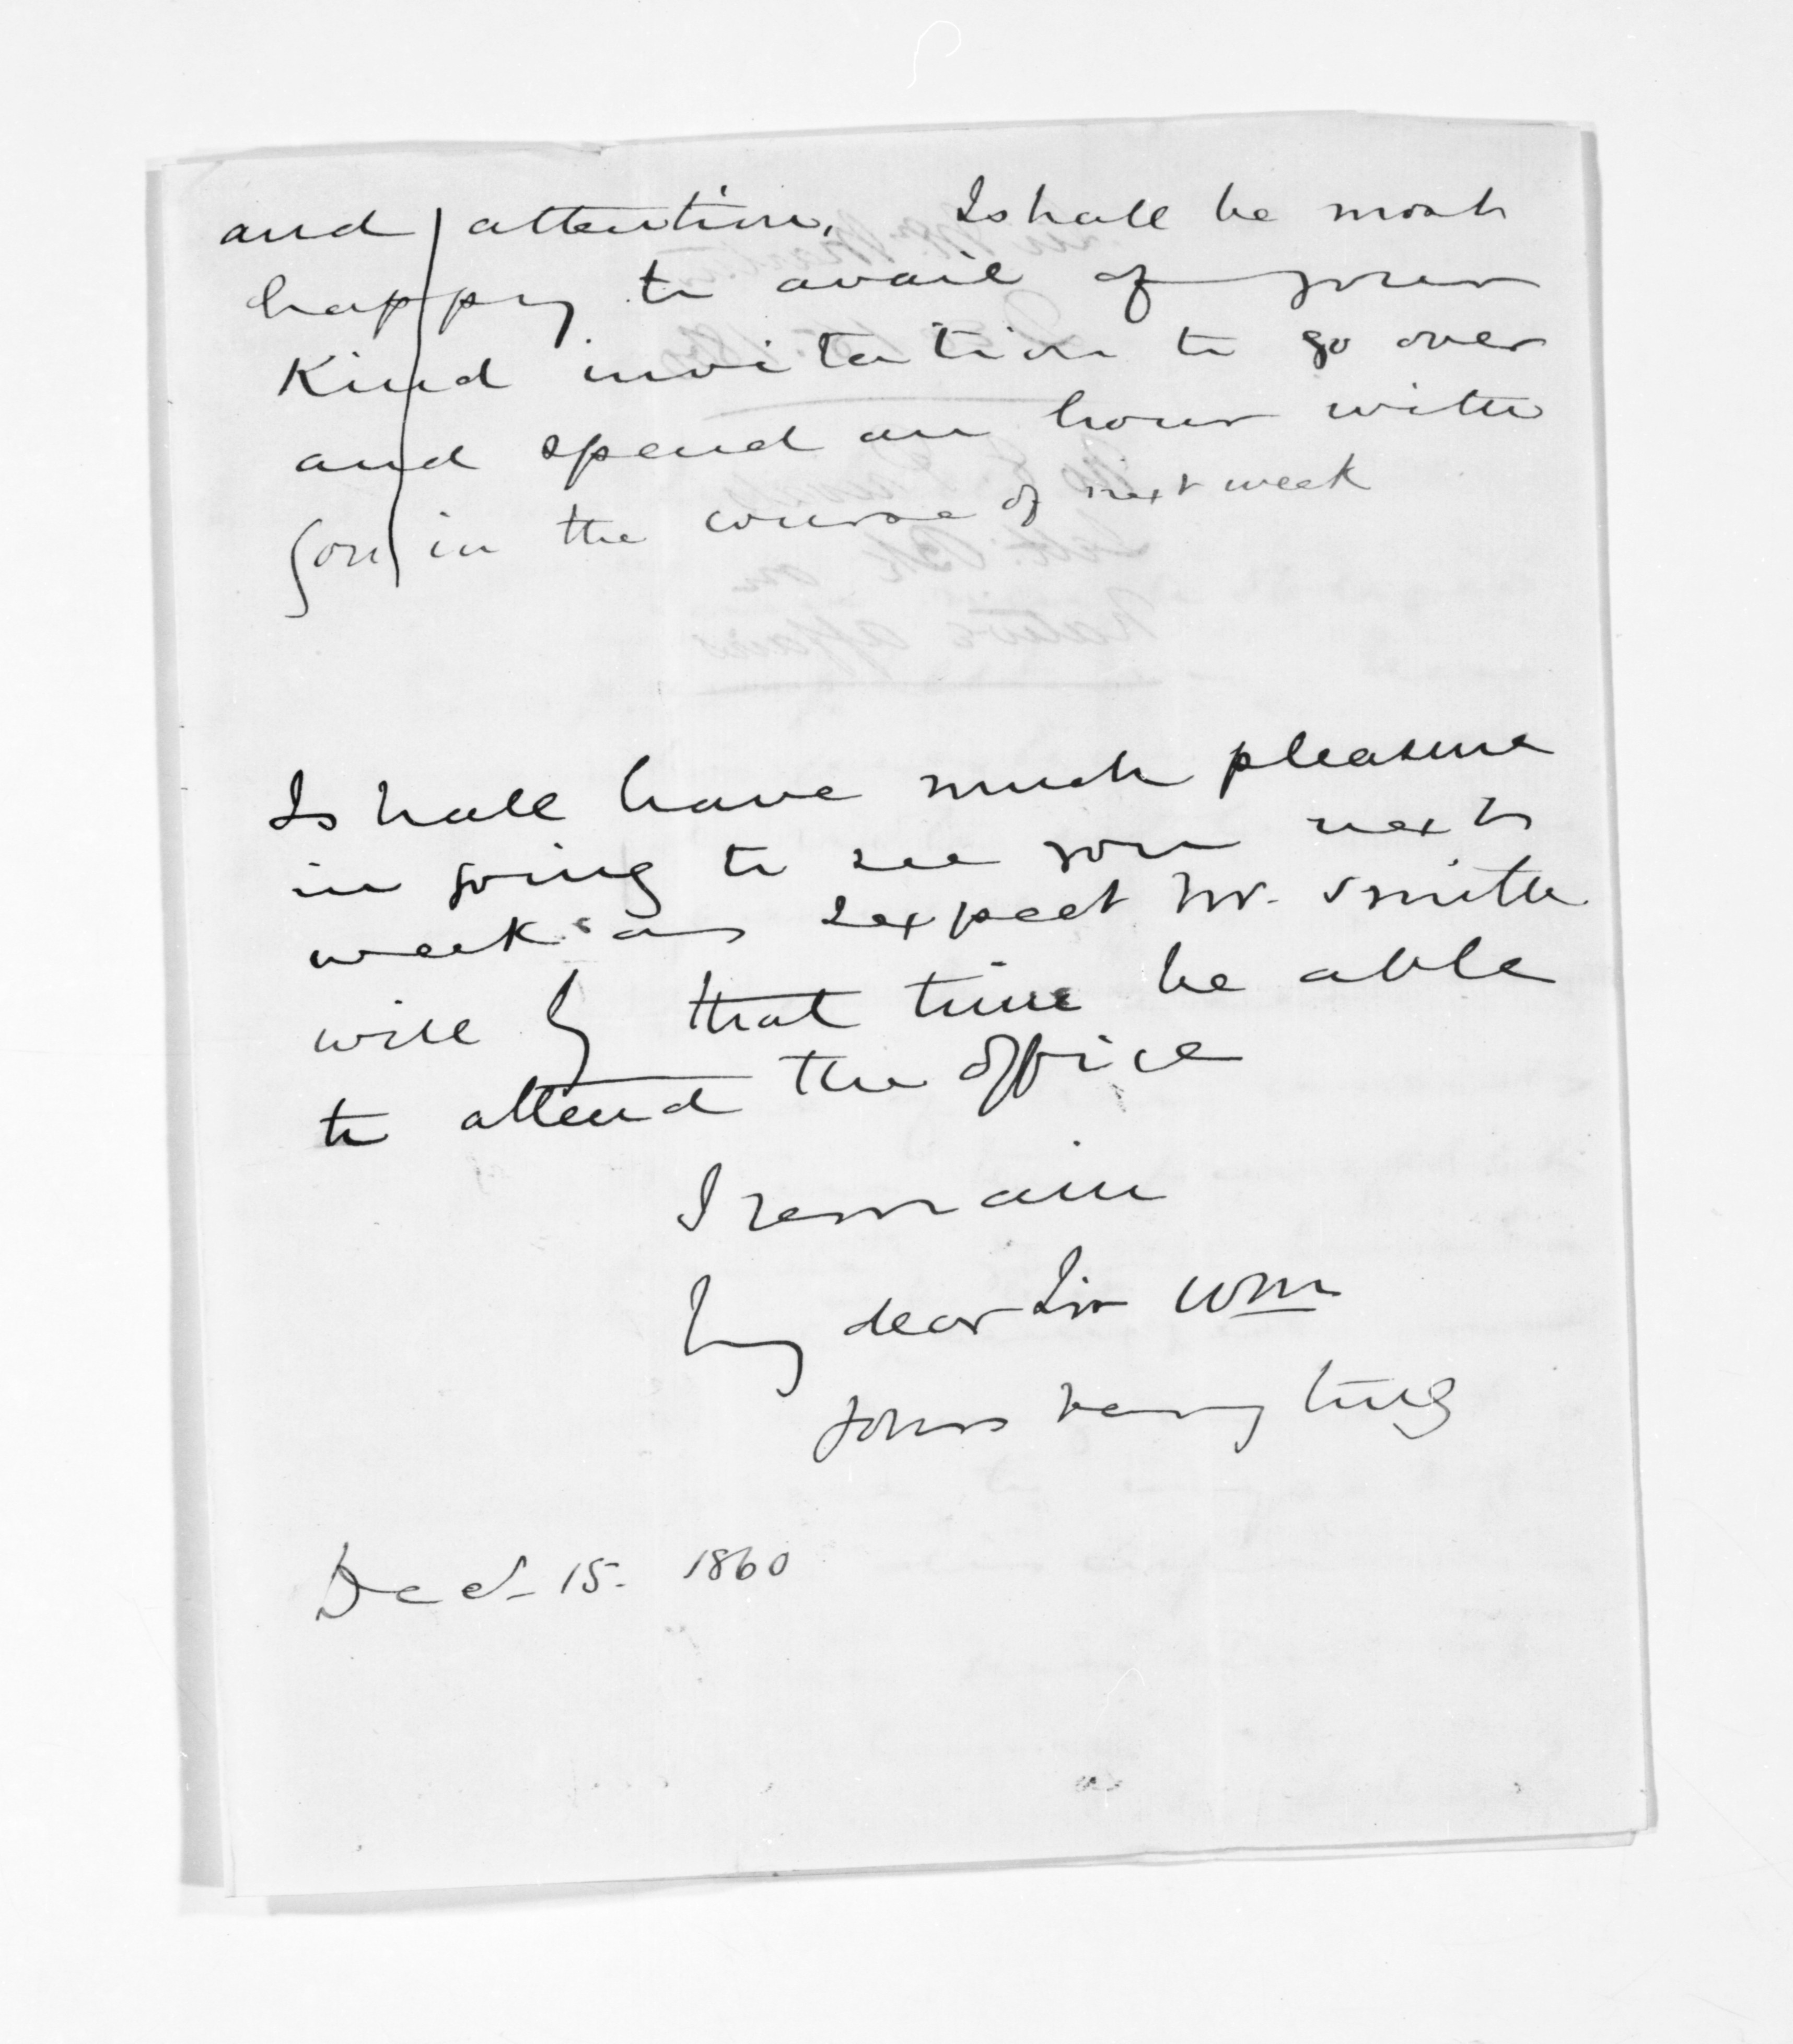 and attention, I shall be most
happy to avail of your
Kind invitation to go over
and spend an hour with
you in the course of next week
I shall have much pleasure
in going to see you next
week as I expect Mr. Smith
will by that time be able
to attend the office
I remain
My dear Sir Wm
Yours very truly
Dec 15. 1860